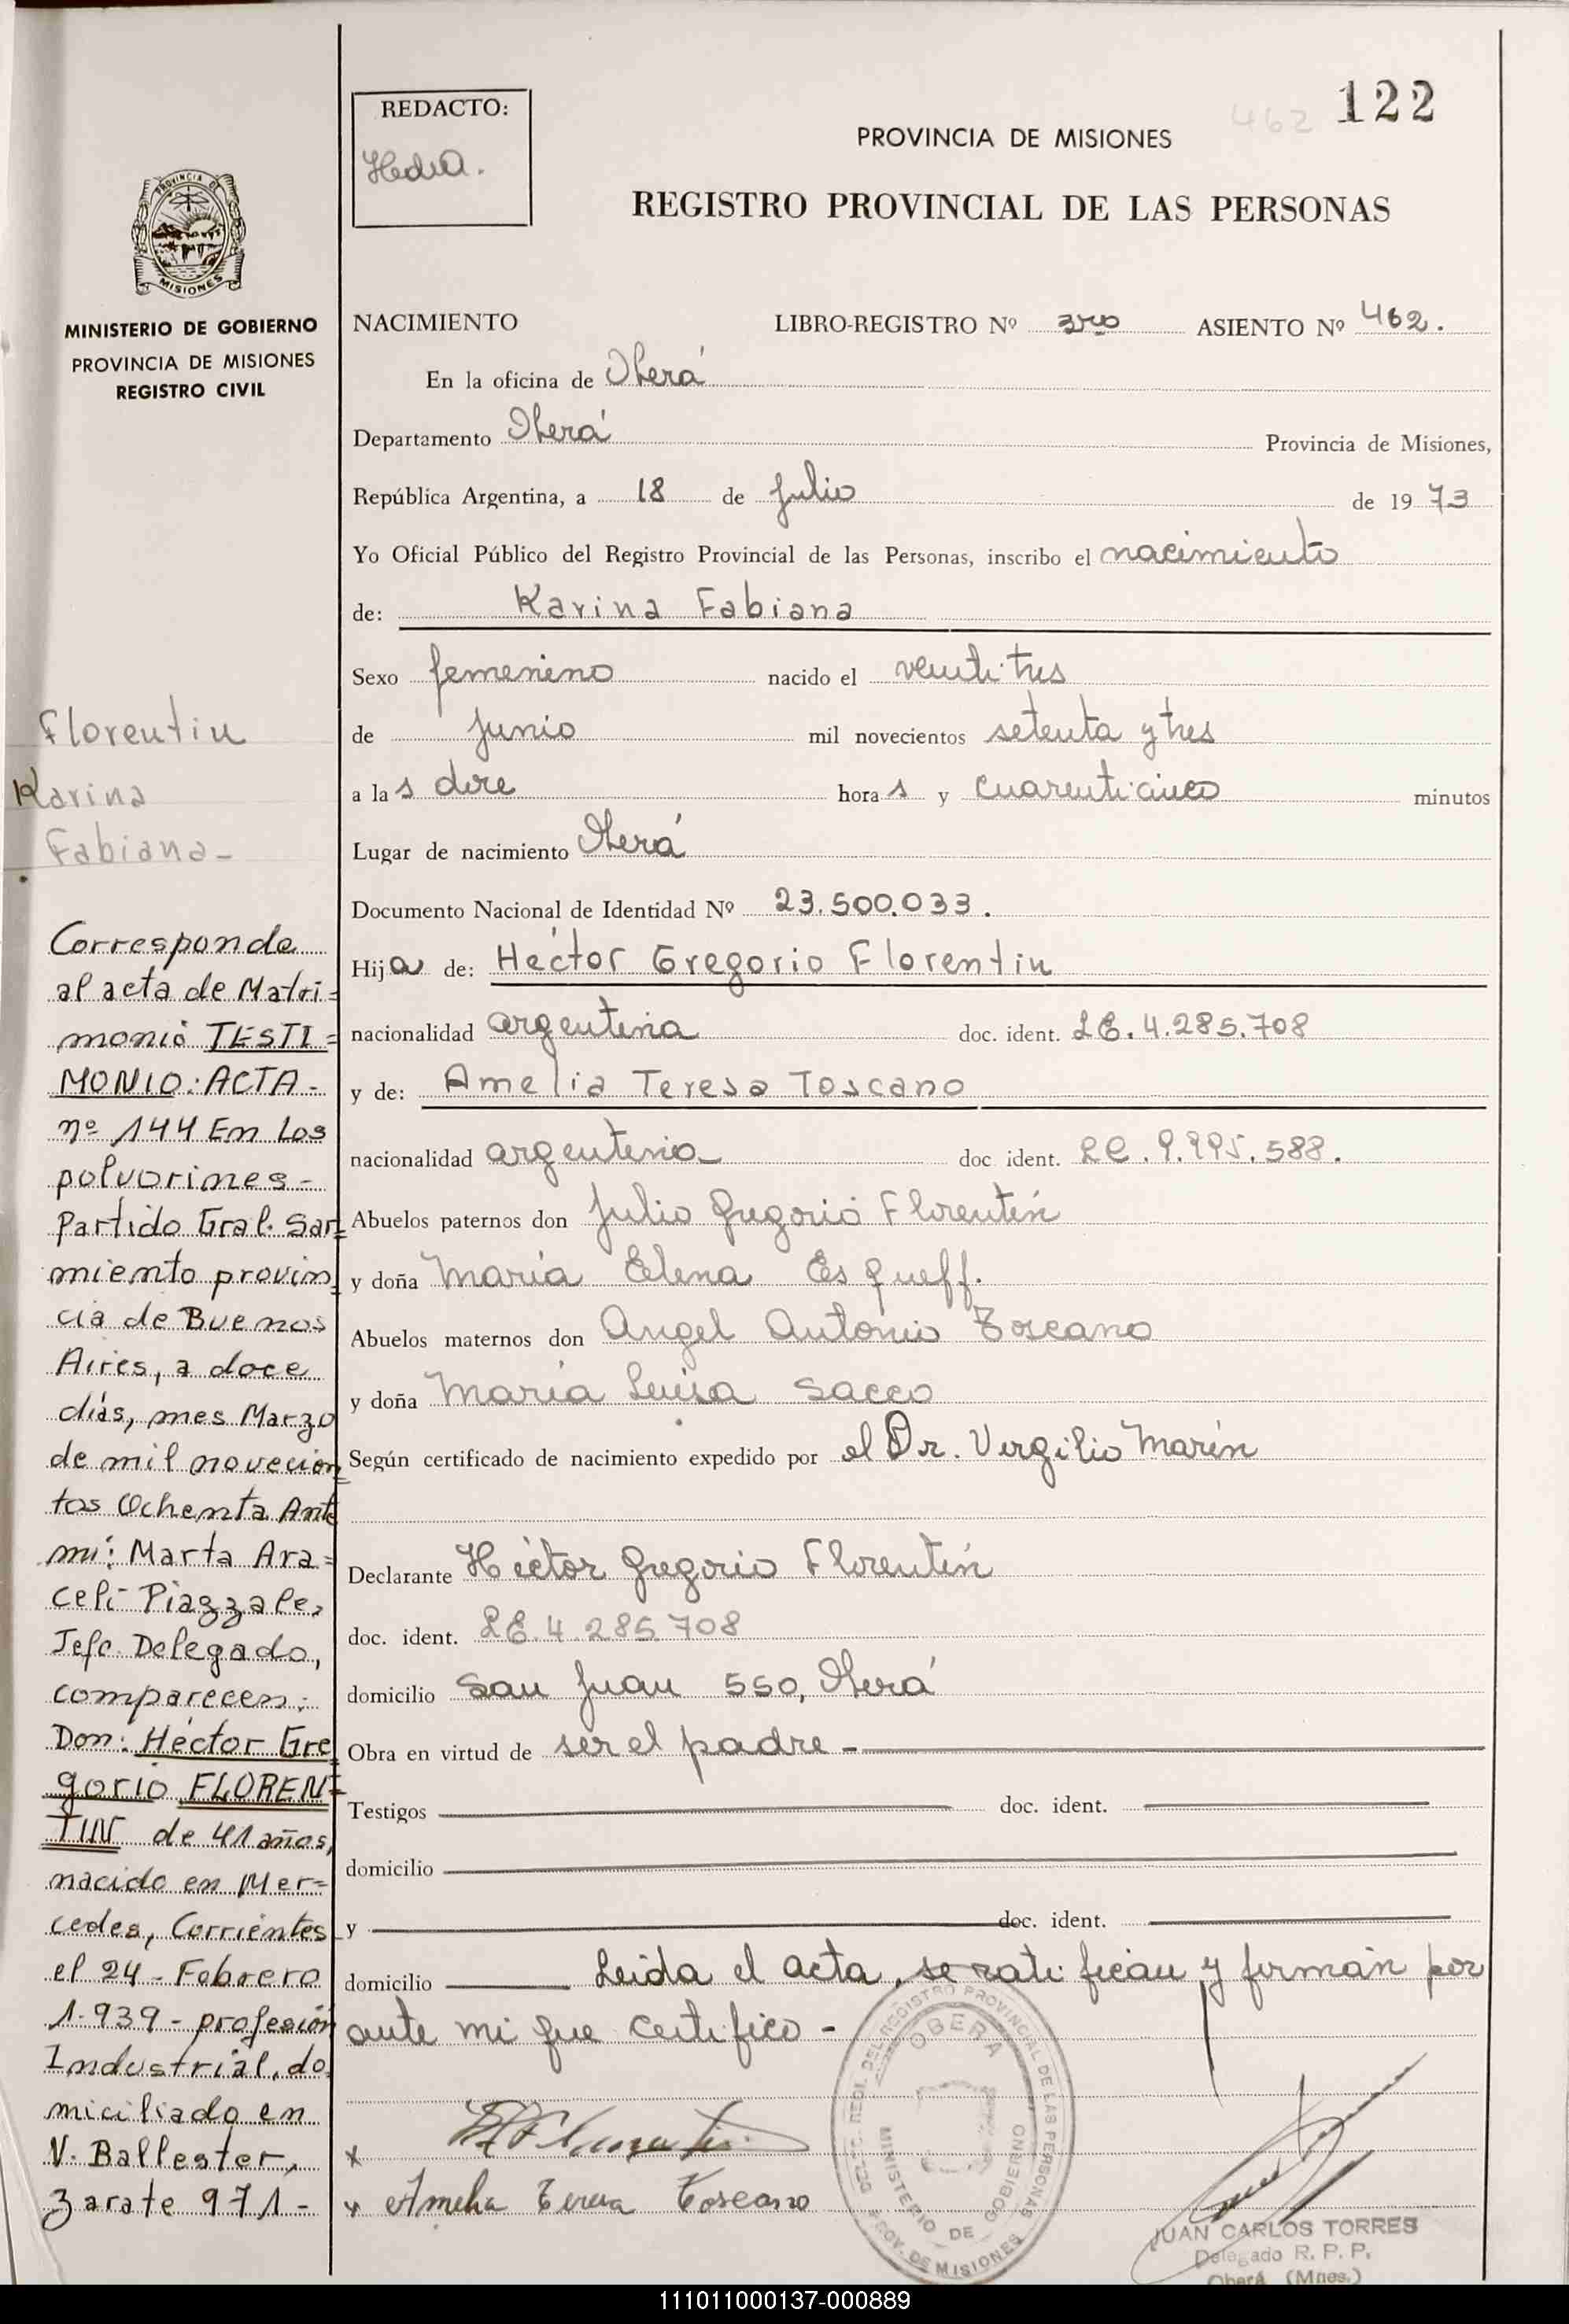 REDACTO:
462 122
PROVINCIA DE MISIONES
REGISTRO PROVINCIAL DE LAS PERSONAS
PROVINCIA DE
MISIONES
MINISTERIO DE GOBIERNO
PROVINCIA DE MISIONES
REGISTRO CIVIL
NACIMIENTO LIBRO-REGISTRO Nº 3ro ASIENTO Nº 462.
En la oficina de Oberá
Departamento Oberá Provincia de Misiones,
República Argentina, a 18 de Julio de 1973
Yo Oficial Público del Registro Provincial de las Personas, inscribo el nacimiento
de: Karina Fabiana
Sexo femenino nacido el veintitres
de junio mil novecientos setenta y tres
a las doce horas y cuarenticinco minutos
Lugar de nacimiento Oberá
Documento Nacional de Identidad Nº 23.500.033.
Hija de: Héctor Gregorio Florentin
nacionalidad argentina doc. ident. LE. 4.285.708
y de: Amelia Teresa Toscano
nacionalidad argentina doc ident. LC. 9.995.588.
Abuelos paternos don Julio Gregorio Florentín
y doña María Elena Esqueff.
Abuelos maternos don Angel Antonio Toscano
y doña María Luisa Sacco
Según certificado de nacimiento expedido por el Dr. Virgilio Marín
Declarante Héctor Gregorio Florentín
doc. ident. LE. 4.285.708
domicilio San Juan 550, Oberá
Obra en virtud de ser el padre -
Testigos doc. ident.
domicilio
y doc. ident.
domicilio Leida el acta, se ratifican y firman por
ante mi que certifico -
x
x Amelia Teresa Toscano
Florentin
Karina
Fabiana-
Corresponde
al acta de Matri=
monio TESTI=
MONIO: ACTA-
nº 144 En Los
polvorines-
Partido Gral. Sar=
miento provin=
cia de Buenos
Aires, a doce
días, mes Marzo
de mil novecien=
tos Ochenta Ante
mi: Marta Ara=
celi Piazzale,
Jefe Delegado,
comparecen:
Don: Héctor Gre=
gorio FLOREN=
TIN de 41 años,
nacido en Mer=
cedes, Corrientes
el 24-Febrero
1.939- profesión
Industrial, do
miciliado en
V. Ballester,
Zarate 971-
REGISTRO PROVINCIAL DE LAS PERSONAS
OBERA
MINISTERIO DE GOBIERNO
PROV. DE MISIONES
JUAN CARLOS TORRES
Delegado R. P. P.
Oberá (Mnes.)
111011000137-000889